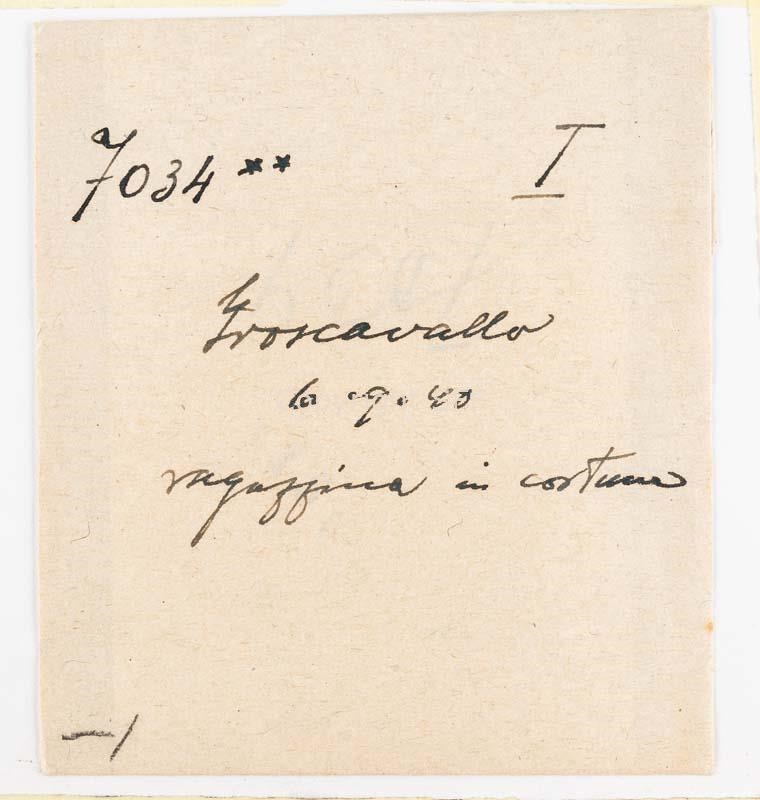 7034 ** I
Groscavallo
9. 40
ragazzina in costume